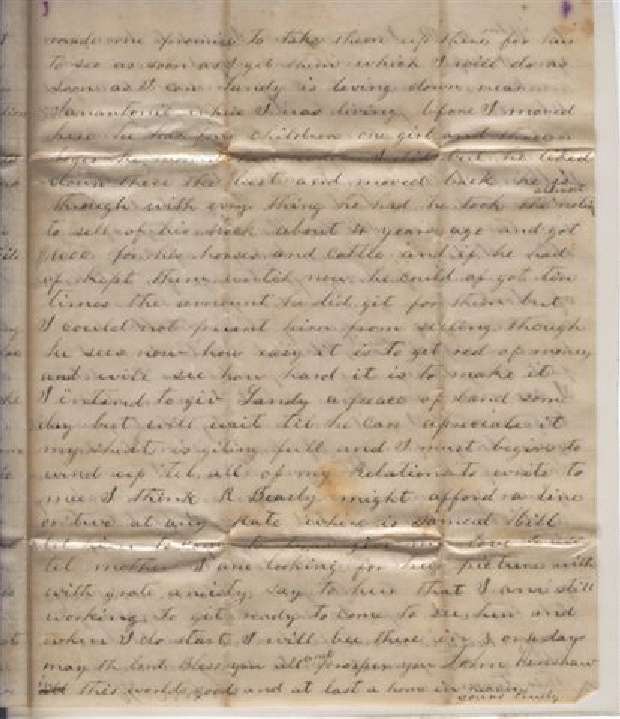 made me promise to take them up there for him
to see as soon as I get them which I will do as
soon as I can Sandy is living down near
Sanantonie where I was living before I moved
here he has four children one girl and three
boys he moved but he liked
down there the best and moved back he is
almost
through with every thing he had he took the notion
to sell of his stock about 4 years ago and got
for his horses and cattle and if he had
of kept them until now he could of got ten
times the amount he did get for them but
I could not prevent him from selling though
he sees now how easy it is to get red of money
and will see how hard it is to make it
I intend to giv Sandy a peace of land som
day but will wait til he can apreciate it
my sheat is giting full and I must begin to
wind up tel all of my Relations to write to
mee I think R Beasly might afford a line
or two at any rate where is Samuel Still
tel him to love to all
tel mother I am looking for her picture with
with grate anxity say to her that I am still
working to get ready to come to see her and
when I do start I will bee there in 3 or 4 days
may th lord bless you all and prosper you John Renshaw
in this worlds good and at last a home in heaven